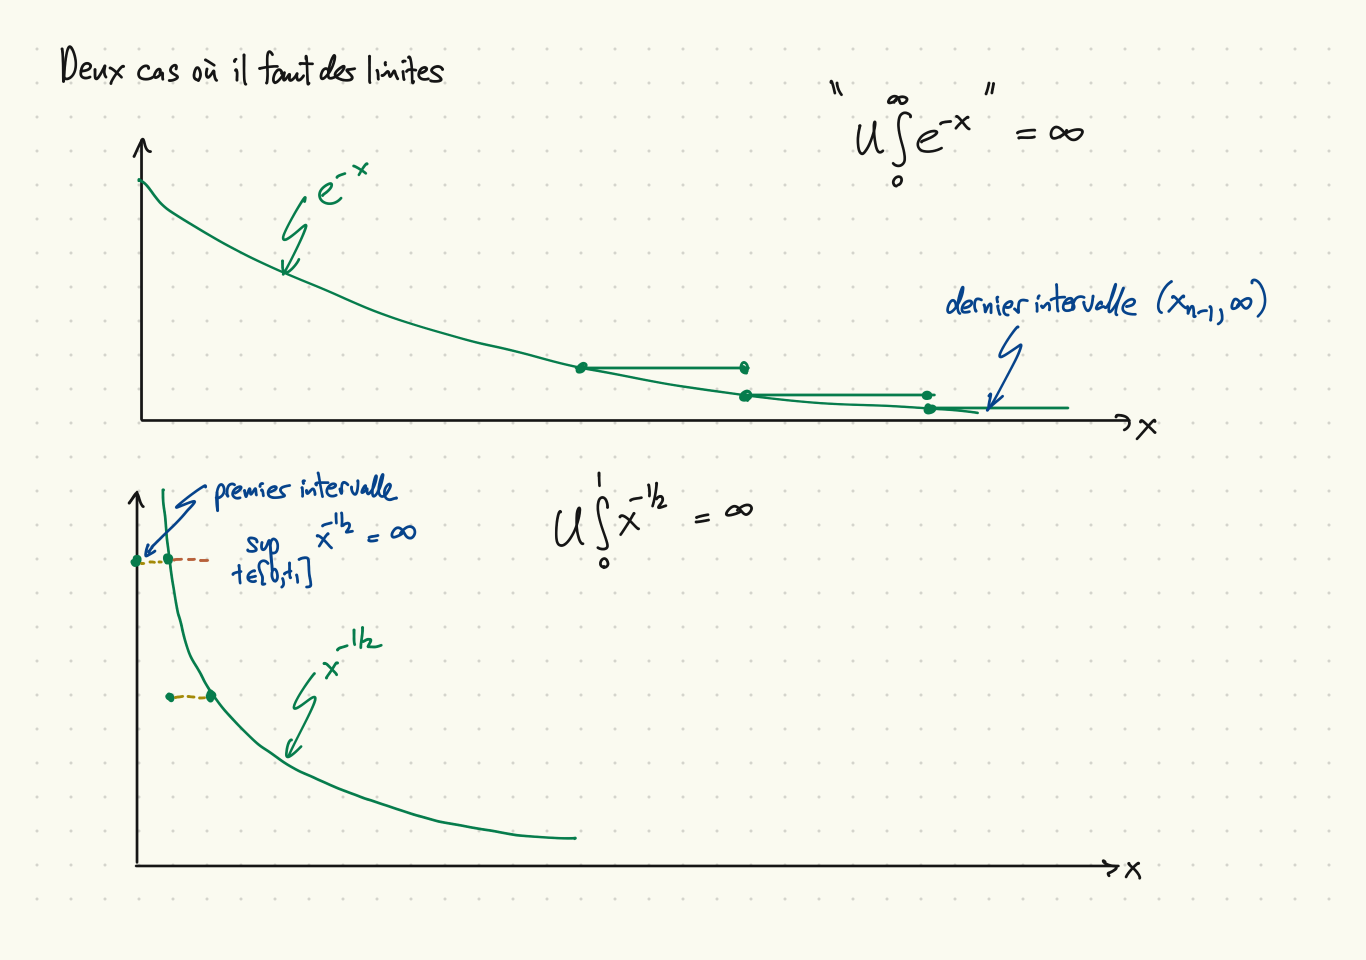 Deux cas où il faut des limites
"U∫₀^∞ e^{-x}" = ∞
e^{-x}
dernier intervalle (x_{n-1}, ∞)
x
premier intervalle
sup x^{-1/2} = ∞
t∈[0,t₁]
U∫₀¹ x^{-1/2} = ∞
x^{-1/2}
x